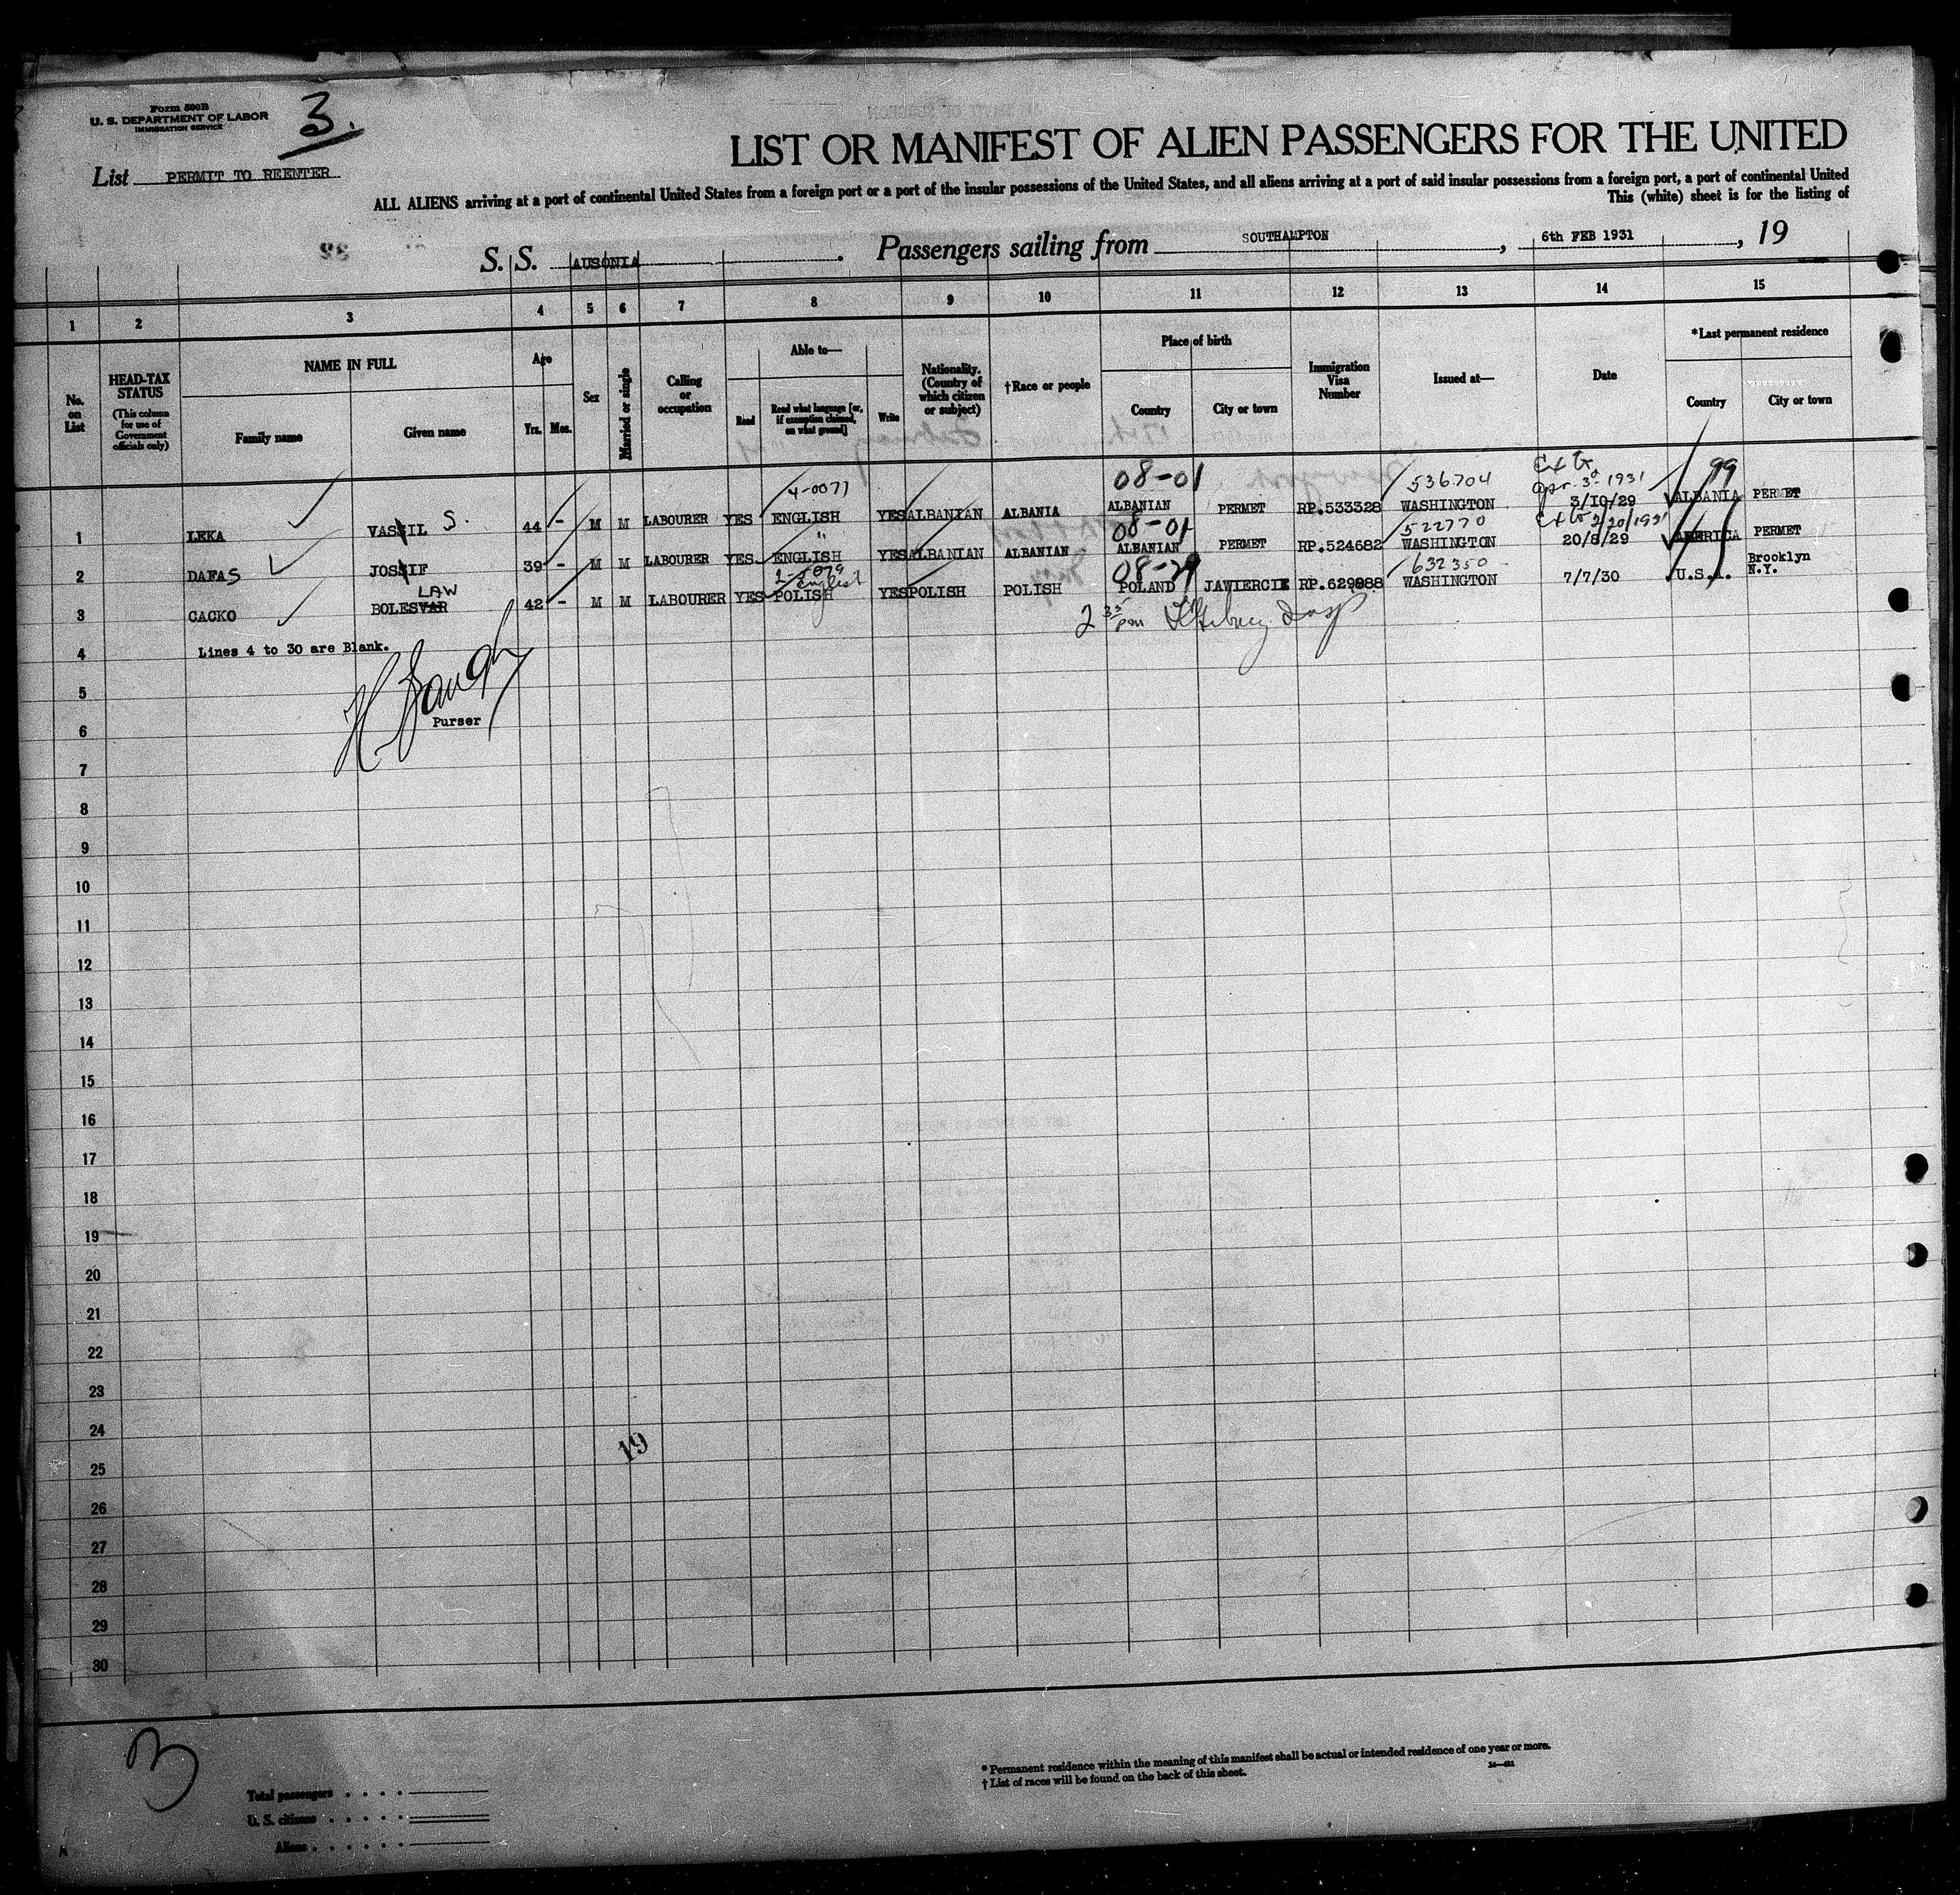 Form 500B
U. S. DEPARTMENT OF LABOR
IMMIGRATION SERVICE
3.
List PERMIT TO REENTER
LIST OR MANIFEST OF ALIEN PASSENGERS FOR THE UNITED
ALL ALIENS arriving at a port of continental United States from a foreign port or a port of the insular possessions of the United States, and all aliens arriving at a port of said insular possessions from a foreign port, a port of continental United
This (white) sheet is for the listing of
S. S. AUSONIA . Passengers sailing from SOUTHAMPTON , 6th FEB 1931 , 19
1 2 3 4 5 6 7 8 9 10 11 12 13 14 15
No. on List
HEAD-TAX STATUS
(This column for use of Government officials only)
NAME IN FULL
Family name Given name
Age
Yrs. Mos.
Sex
Married or single
Calling or occupation
Able to—
Read Read what language [or, if exemption claimed, on what ground] Write
Nationality. (Country of which citizen or subject)
†Race or people
Place of birth
Country City or town
Immigration Visa Number
Issued at—
Date
*Last permanent residence
Country City or town
4-0077 08-01 536704 Apr. 3 1931 99
1 LEKA VASSIL S. 44 - M M LABOURER YES ENGLISH YES ALBANIAN ALBANIA ALBANIAN PERMET RP.533328 WASHINGTON 3/10/29 ALBANIA PERMET
" 08-01 522770 2/20/1931
2 DAFAS JOSSIF 39 - M M LABOURER YES ENGLISH YES ALBANIAN ALBANIAN ALBANIAN PERMET RP.524682 WASHINGTON 20/8/29 AMERICA PERMET
LAW English 08-29 632350
3 CACKO BOLESVAR 42 - M M LABOURER YES POLISH YES POLISH POLISH POLAND JAWIERCIE RP.629888 WASHINGTON 7/7/30 U.S.A. Brooklyn N.Y.
2 35 pm
4 Lines 4 to 30 are Blank.
5
6 Purser
7
8
9
10
11
12
13
14
15
16
17
18
19
20
21
22
23
24
19
25
26
27
28
29
30
3
* Permanent residence within the meaning of this manifest shall be actual or intended residence of one year or more.
† List of races will be found on the back of this sheet.
Total passengers . . . .
U. S. citizens . . . . .
Aliens . . . . . .